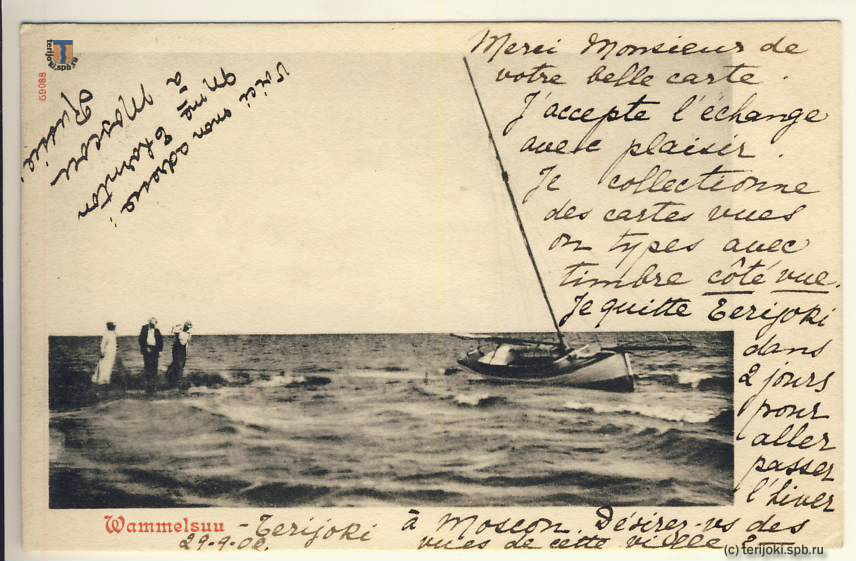 Merci Monsieur de
votre belle carte.
J'accepte l'échange
avec plaisir.
Je collectionne
des cartes vues
ou types avec
timbre côté vue.
Je quitte Terijoki
dans
2 jours
pour
aller
passer
l'hiver
à Moscou. Désirez-vs des
vues de cette ville?
voici mon adresse:
Mme
à
Moscou
Russie
59088
terijoki.spb.ru
Wammelsuu - Terijoki
29-9-02.
(c) terijoki.spb.ru